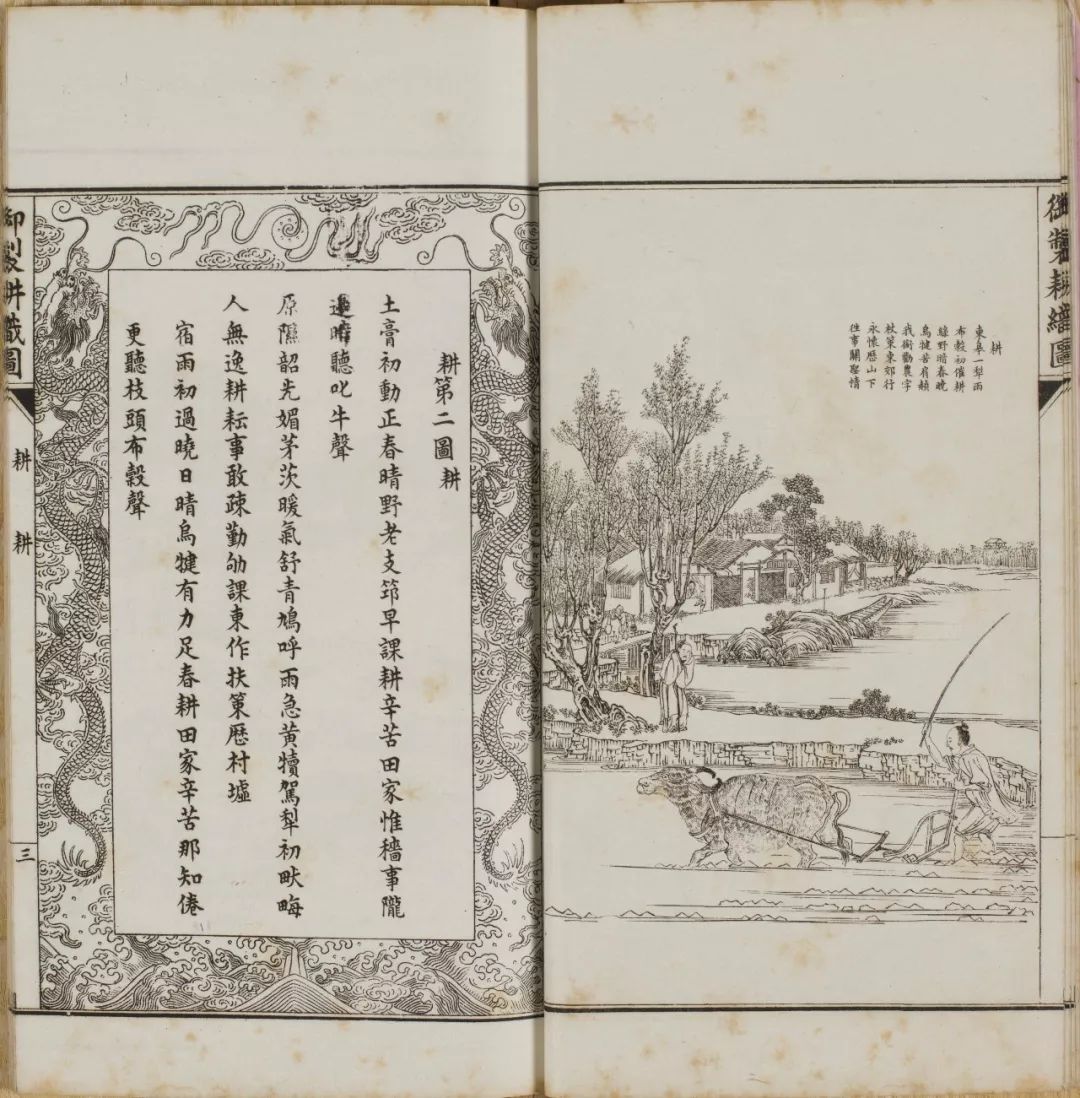 御製耕織圖
耕
東皋一犁雨
布穀初催耕
綠野暗春曉
烏犍苦肩赬
我銜勸農字
杖策東郊行
永懷歷山下
往事關聖情
耕第二圖耕
土膏初動正春晴野老支筇早課耕辛苦田家惟穡事隴
邊聽叱牛聲
原隰韶光媚茅茨暖氣舒青鳩呼雨急黃犢駕犁初畎畝
人無逸耕耘事敢疎勤劬課東作扶策歷村墟
宿雨初過曉日晴烏犍有力足春耕田家辛苦那知倦
更聽枝頭布穀聲
御製耕織圖
耕
耕
三